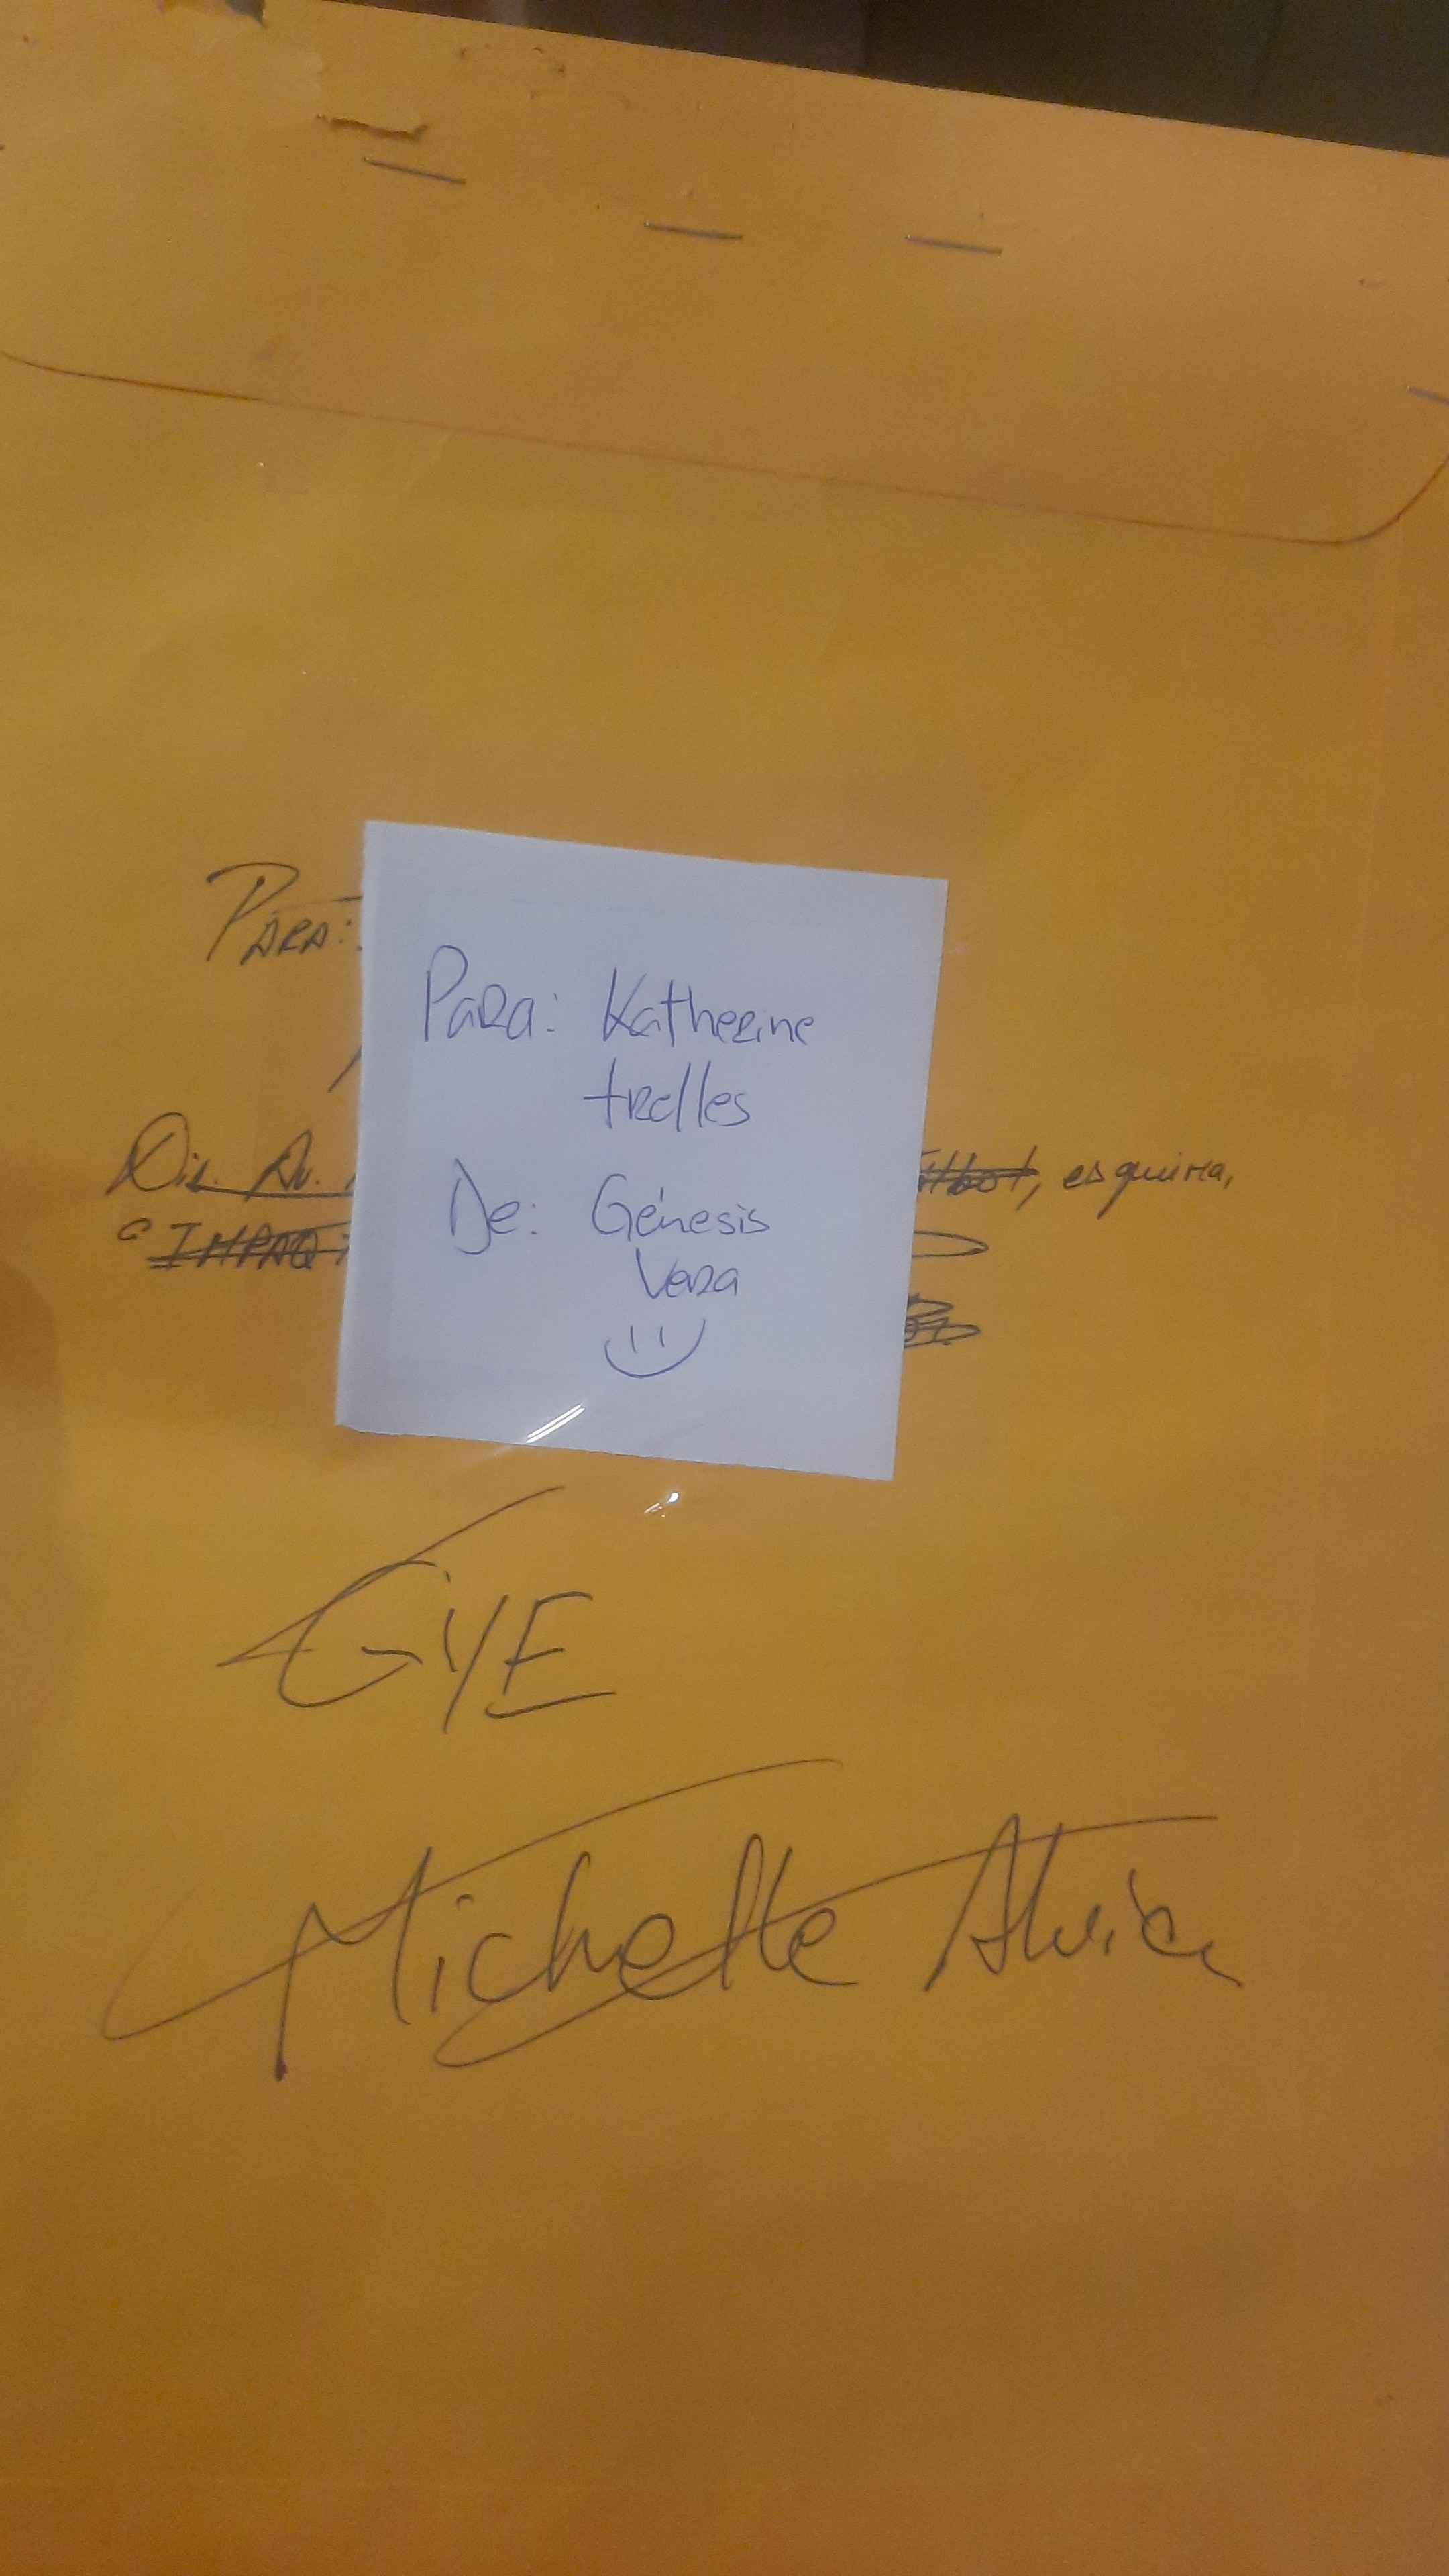 PARA:
Para: Katherine
trelles
De: Génesis
Vera
Dir. Av.
, esquina,
"IMPAQ
GYE
Michelle Alvia